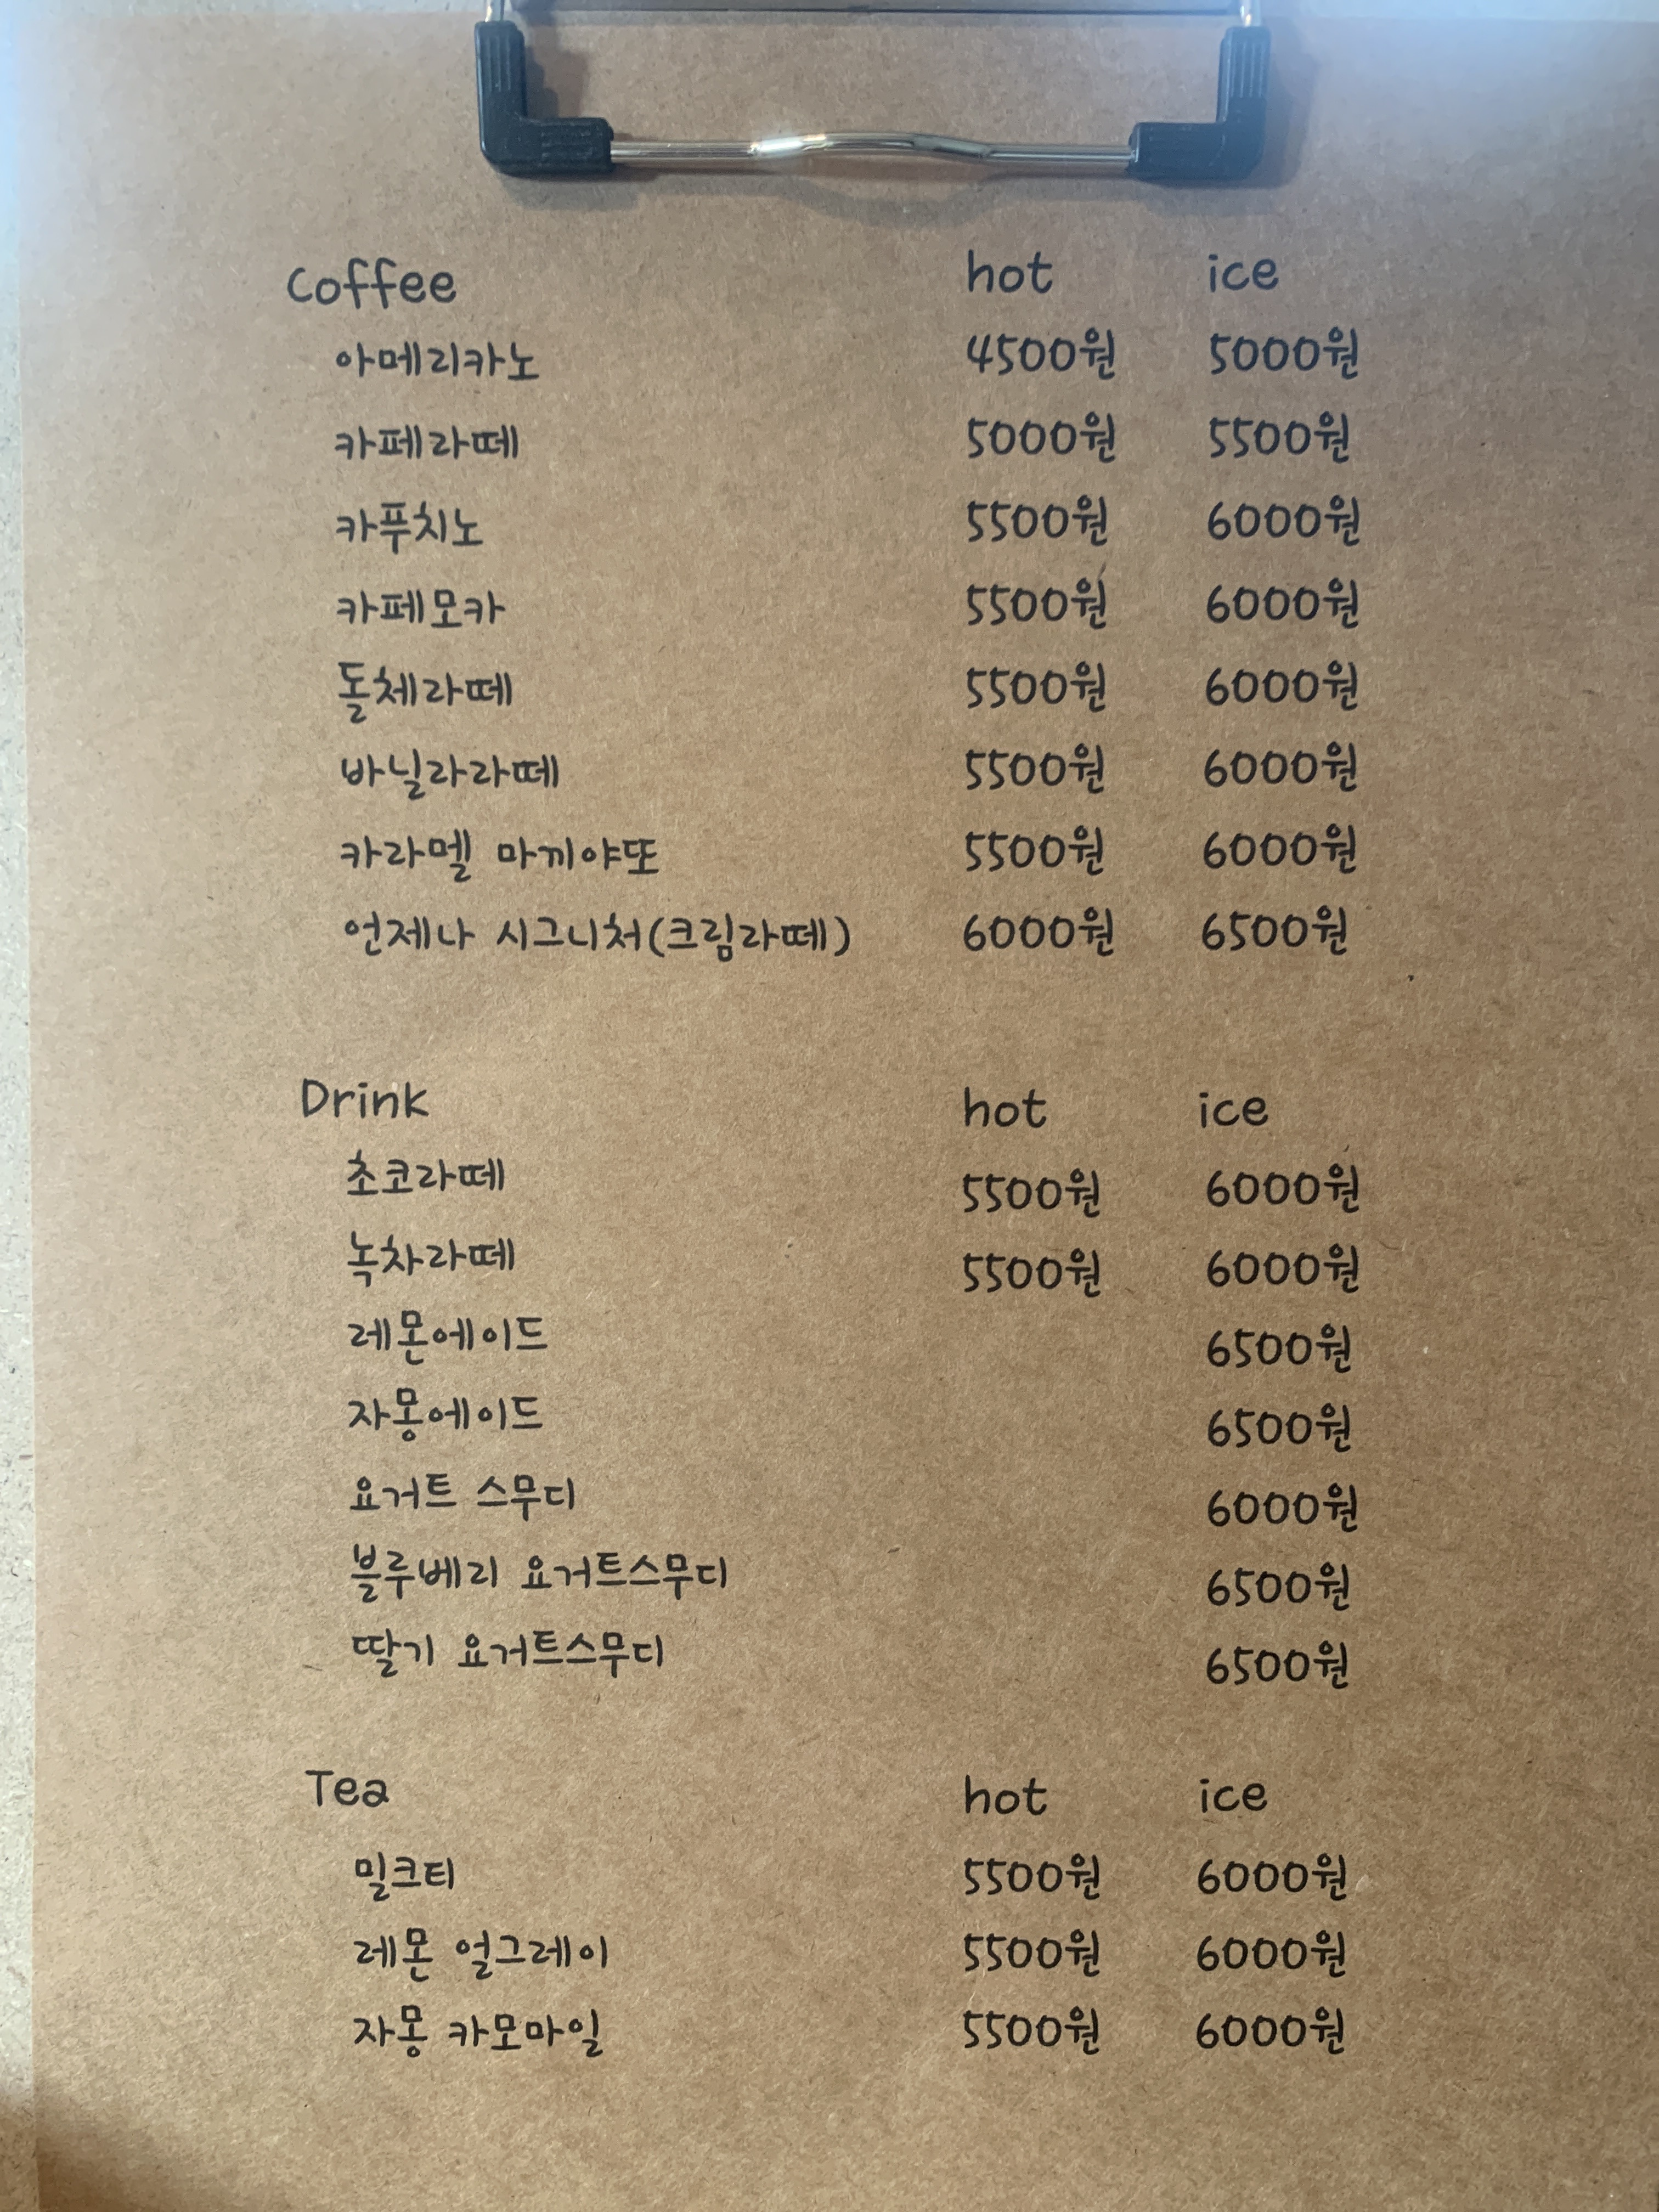 Coffee hot ice
아메리카노 4500원 5000원
카페라떼 5000원 5500원
카푸치노 5500원 6000원
카페모카 5500원 6000원
돌체라떼 5500원 6000원
바닐라라떼 5500원 6000원
카라멜 마끼야또 5500원 6000원
언제나 시그니처(크림라떼) 6000원 6500원
Drink hot ice
초코라떼 5500원 6000원
녹차라떼 5500원 6000원
레몬에이드 6500원
자몽에이드 6500원
요거트 스무디 6000원
블루베리 요거트스무디 6500원
딸기 요거트스무디 6500원
Tea hot ice
밀크티 5500원 6000원
레몬 얼그레이 5500원 6000원
자몽 카모마일 5500원 6000원